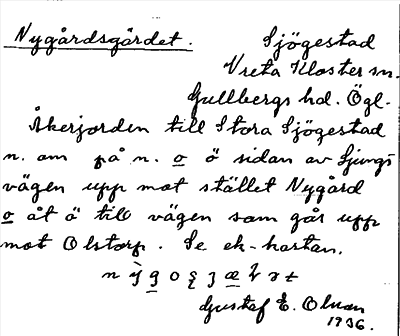 Nygårdsgärdet.
Sjögestad
Vreta Kloster sn.
Gullbergs hd. Ögl.
Åkerjorden till Stora Sjögestad
n. om på n. o ö sidan av Ljungs
vägen upp mot stället Nygård
o åt ö till vägen som går upp
mot Olstorp. Se ek-kartan.
Gustaf E. Olsson
1936.